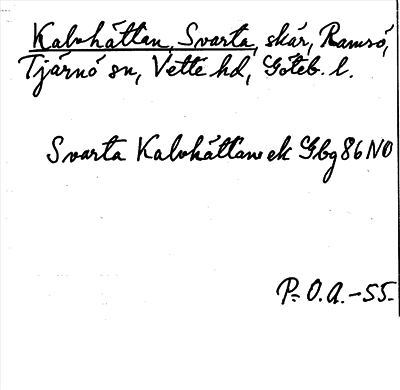 Kalvhättan, Svarta, skär, Ramsö,
Tjärnö sn, Vette hd, Göteb. l.
Svarta Kalvhättan ek Gbg 86 NO
P. O. A. - 55.